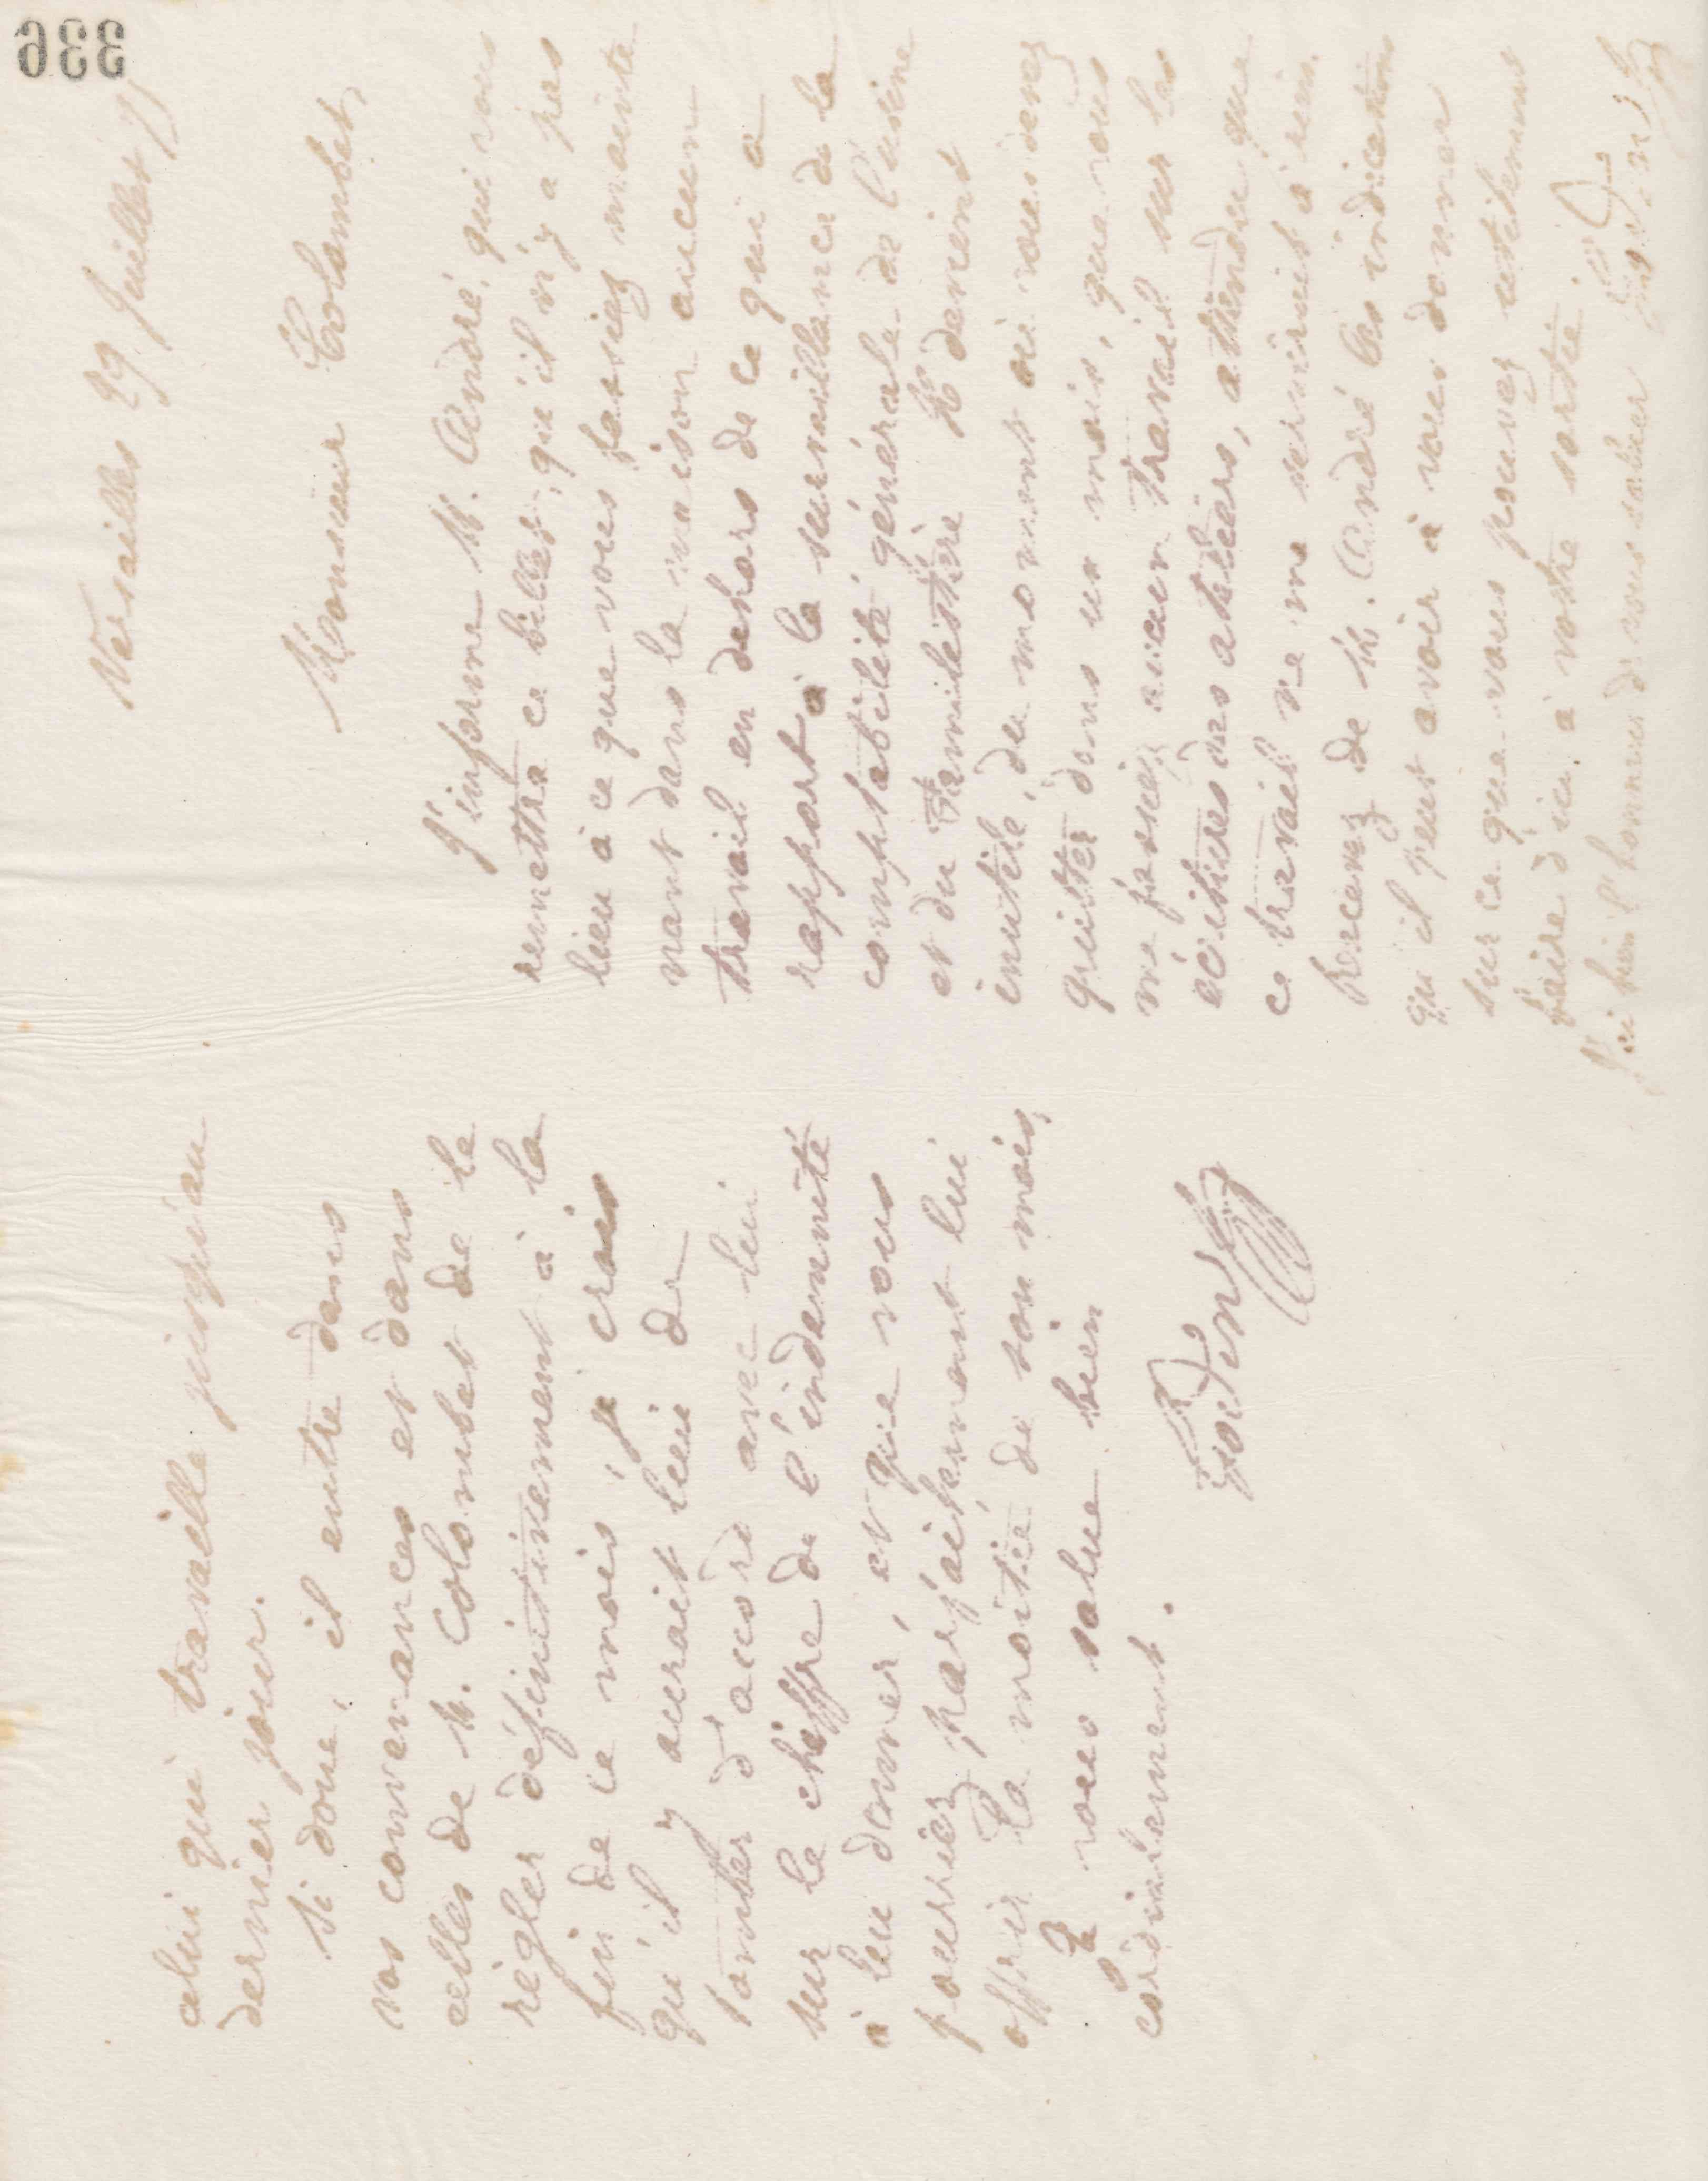 celui qui travaille jusqu'au
dernier jour.
Si donc, il entre dans
vos convenances et dans
celles de M. Colombet de le
régler définitivement à la
fin de ce mois, je crois
qu'il y aurait lieu de
tomber d'accord avec lui
sur le chiffre de l'indemnité
à leu donner, et que vous
pourriez parfaitement lui
offrir la moitié de son mois,
Je vous salue bien
cordialement.
Godin
Versailles 29 Juillet 77
Monsieur Colombet,
J'informe M. André, qui vous
remettra ce billet, qu'il n'y a pas
lieu à ce que vous fassiez mainte
nant dans la maison aucun
travail en dehors de ce qui a
rapport à la surveillance de la
comptabilité générale de l'usine
et du Familistère. Il devient
inutile, du moment où vous devez
quitter dans un mois, que vous
me fassiez aucun travail sur les
écritures des ateliers, attendu que
ce travail ne me servirait à rien.
Recevez de M. André les indications
qu'il peut avoir à vous donner
sur ce que vous pouvez utilement
faire d'ici à votre sortie.
J'ai bien l'honneur de vous saluer Godin
336